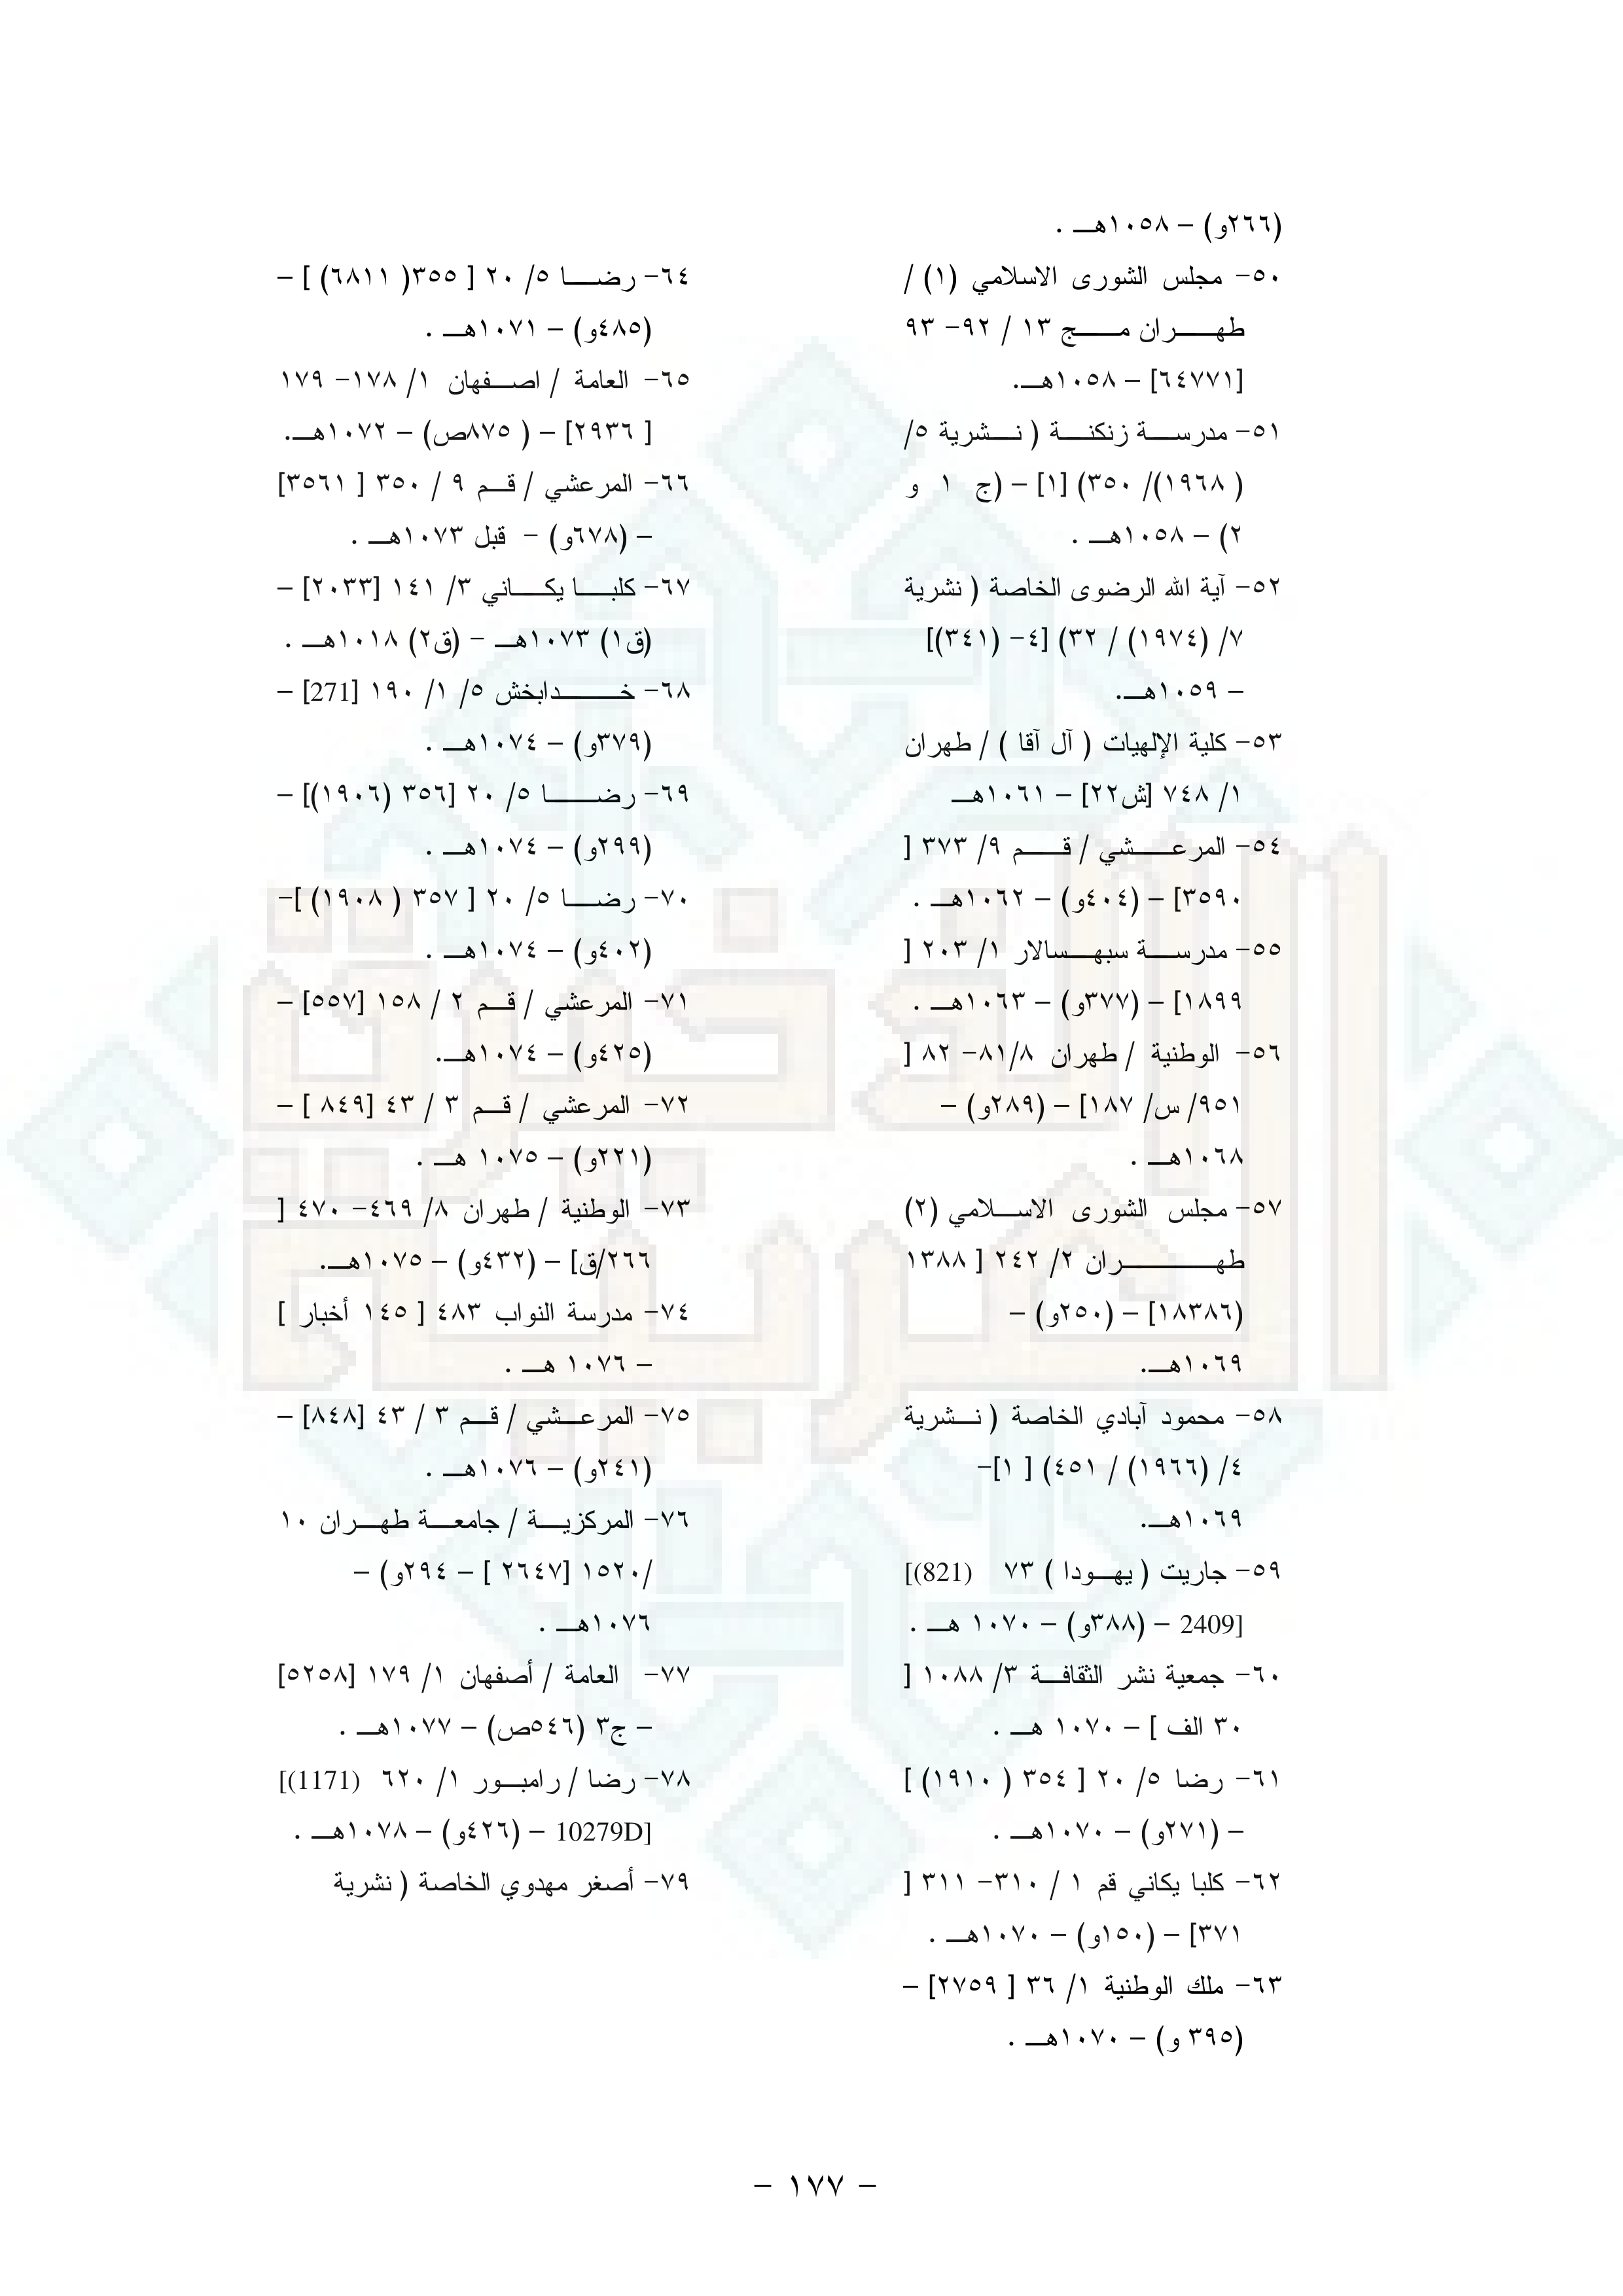 (٢٦٦و) – ١٠٥٨هـ .
٥٠- مجلس الشورى الاسلامي (١) /
طهران مج ١٣ / ٩٢- ٩٣
[٦٤٧٧١] – ١٠٥٨هـ.
٥١- مدرسة زنكنة ( نشرية ٥/
( ١٩٦٨)/ ٣٥٠) [١] – (ج ١ و
٢) – ١٠٥٨هـ .
٥٢- آية الله الرضوى الخاصة ( نشرية
٧/ (١٩٧٤) / ٣٢) [٤- (٣٤١)]
– ١٠٥٩هـ.
٥٣- كلية الإلهيات ( آل آقا ) / طهران
١/ ٧٤٨ [ش٢٢] – ١٠٦١هـ
٥٤- المرعشي / قم ٩/ ٣٧٣ [
٣٥٩٠] – (٤٠٤و) – ١٠٦٢هـ .
٥٥- مدرسة سبهسالار ١/ ٢٠٣ [
١٨٩٩] – (٣٧٧و) – ١٠٦٣هـ .
٥٦- الوطنية / طهران ٨١/٨- ٨٢ [
٩٥١/ س/ ١٨٧] – (٢٨٩و) –
١٠٦٨هـ .
٥٧- مجلس الشورى الاسلامي (٢)
طهران ٢/ ٢٤٢ [ ١٣٨٨
(١٨٣٨٦] – (٢٥٠و) –
١٠٦٩هـ.
٥٨- محمود آبادي الخاصة ( نشرية
٤/ (١٩٦٦) / ٤٥١) [ ١]-
١٠٦٩هـ.
٥٩- جاريت ( يهودا ) ٧٣ (821)]
2409] – (٣٨٨و) – ١٠٧٠ هـ .
٦٠- جمعية نشر الثقافة ٣/ ١٠٨٨ [
٣٠ الف ] – ١٠٧٠ هـ .
٦١- رضا ٥/ ٢٠ [ ٣٥٤ ( ١٩١٠) ]
– (٢٧١و) – ١٠٧٠هـ .
٦٢- كلبا يكاني قم ١ / ٣١٠- ٣١١ [
٣٧١] – (١٥٠و) – ١٠٧٠هـ .
٦٣- ملك الوطنية ١/ ٣٦ [ ٢٧٥٩] –
(٣٩٥ و) – ١٠٧٠هـ .
٦٤- رضا ٥/ ٢٠ [ ٣٥٥( ٦٨١١) ] –
(٤٨٥و) – ١٠٧١هـ .
٦٥- العامة / اصفهان ١/ ١٧٨- ١٧٩
[ ٢٩٣٦] – ( ٨٧٥ص) – ١٠٧٢هـ.
٦٦- المرعشي / قم ٩ / ٣٥٠ [ ٣٥٦١]
– (٦٧٨و) - قبل ١٠٧٣هـ .
٦٧- كلبا يكاني ٣/ ١٤١ [٢٠٣٣] –
(ق١) ١٠٧٣هـ - (ق٢) ١٠١٨هـ .
٦٨- خدابخش ٥/ ١/ ١٩٠ [271] –
(٣٧٩و) – ١٠٧٤هـ .
٦٩- رضا ٥/ ٢٠ [٣٥٦ (١٩٠٦)] –
(٢٩٩و) – ١٠٧٤هـ .
٧٠- رضا ٥/ ٢٠ [ ٣٥٧ ( ١٩٠٨) ]-
(٤٠٢و) – ١٠٧٤هـ .
٧١- المرعشي / قم ٢ / ١٥٨ [٥٥٧] –
(٤٢٥و) – ١٠٧٤هـ.
٧٢- المرعشي / قم ٣ / ٤٣ [٨٤٩ ] –
(٢٢١و) – ١٠٧٥ هـ .
٧٣- الوطنية / طهران ٨/ ٤٦٩- ٤٧٠ [
٢٦٦/ق] – (٤٣٢و) – ١٠٧٥هـ.
٧٤- مدرسة النواب ٤٨٣ [ ١٤٥ أخبار ]
– ١٠٧٦ هـ .
٧٥- المرعشي / قم ٣ / ٤٣ [٨٤٨] –
(٢٤١و) – ١٠٧٦هـ .
٧٦- المركزية / جامعة طهران ١٠
/١٥٢٠ [٢٦٤٧ ] – ٢٩٤و) –
١٠٧٦هـ .
٧٧- العامة / أصفهان ١/ ١٧٩ [٥٢٥٨]
– ج٣ (٥٤٦ص) – ١٠٧٧هـ .
٧٨- رضا / رامبور ١/ ٦٢٠ (1171)]
10279D] – (٤٢٦و) – ١٠٧٨هـ .
٧٩- أصغر مهدوي الخاصة ( نشرية
– ١٧٧ –